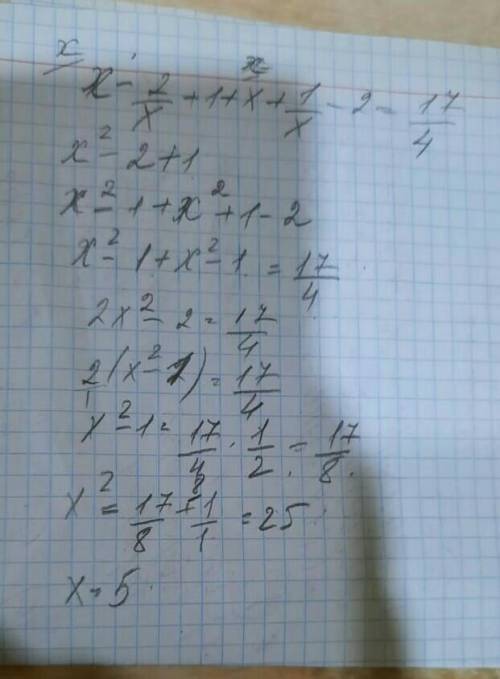 x
x
x - 2/x + 1 + x + 1/x - 2 = 17/4
x² - 2 + 1
x² - 1 + x² + 1 - 2
x² - 1 + x² - 1 = 17/4
2x² - 2 = 17/4
2/1 (x² - 1) = 17/4
x² - 1 = 17/4 · 1/2 = 17/8
x² = 17/8 + 8 1/1 = 25
x = 5